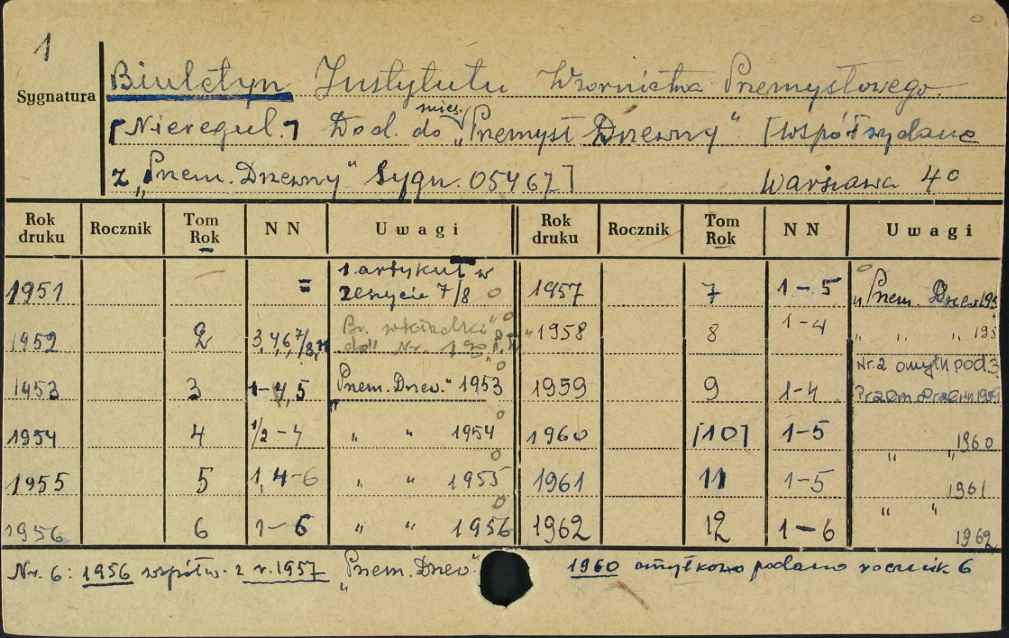 1
Sygnatura
Biuletyn Instytutu Wzornictwa Przemysłowego.
[Nieregul.] Dod. do mies. „Przemysł Drzewny" [Współwydane
z „Przem. Drzewny" Sygn. 05467] Warszawa 4°
Rok druku Rocznik Tom Rok NN Uwagi Rok druku Rocznik Tom Rok NN Uwagi
1951 — = 1 artykuł w zeszycie 7/8 1957 7 1-5 „Przem. Drzew 195
1952 2 3,4,6,7/8, 1958 8 1-4 „ „ 195
1953 3 1-4,5 „Przem. Drzew." 1953 1959 9 1-4 Nr. 2 omyłk pod 3 Przem. Drzewn 1959
1954 4 1/2-4 „ „ 1954 1960 [10] 1-5 „ „ 1960
1955 5 1,4-6 „ „ 1955 1961 11 1-5 „ „ 1961
1956 6 1-6 „ „ 1956 1962 12 1-6 1962
Nr. 6: 1956 współw. z r. 1957 „Przem. Drzew." 1960 omyłkowo podano rocznik 6